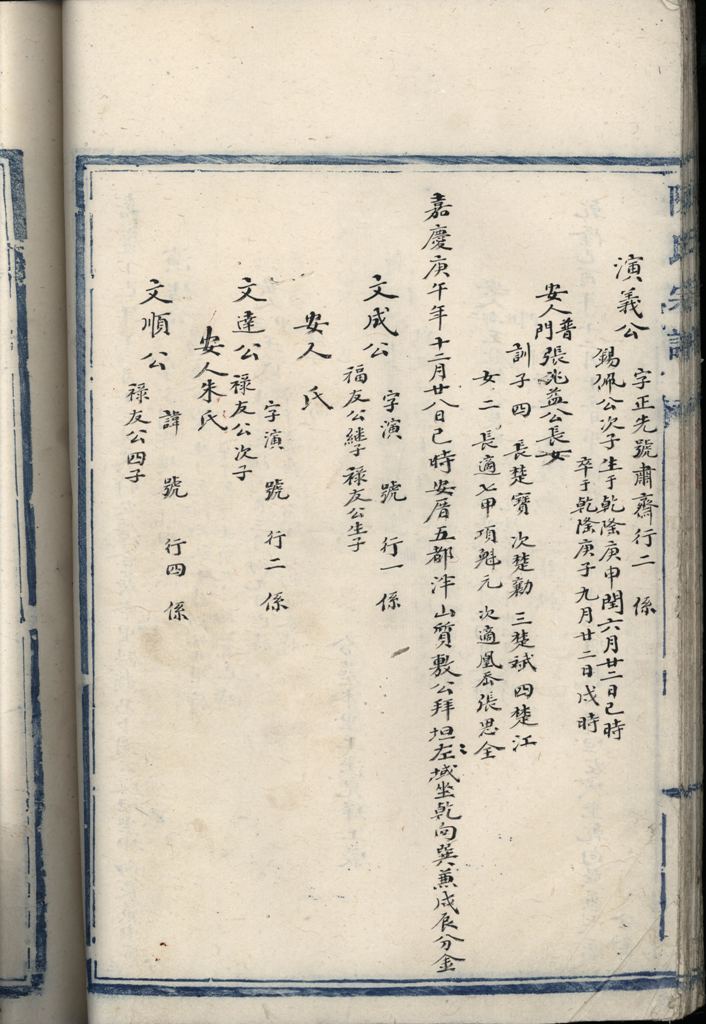 陳氏宗譜
演義公
字正先號肅齋行二 係
錫佩公次子生于乾隆庚申閏六月廿二日巳時
卒于乾隆庚子九月廿二日戌時
安人普門張兆益公長女
訓子四 長楚寶 次楚勷 三楚斌 四楚江
女二 長適七甲項魁元 次適凰岙張思全
嘉慶庚午年十二月廿八日巳時安厝五都泮山質敷公拜坦左域坐乾向巽兼戌辰分金
文成公 字演 號 行一 係
福友公繼子 祿友公生子
安人 氏
文達公 字演 號 行二 係
祿友公次子
安人朱氏
文順公 諱 號 行四 係
祿友公四子